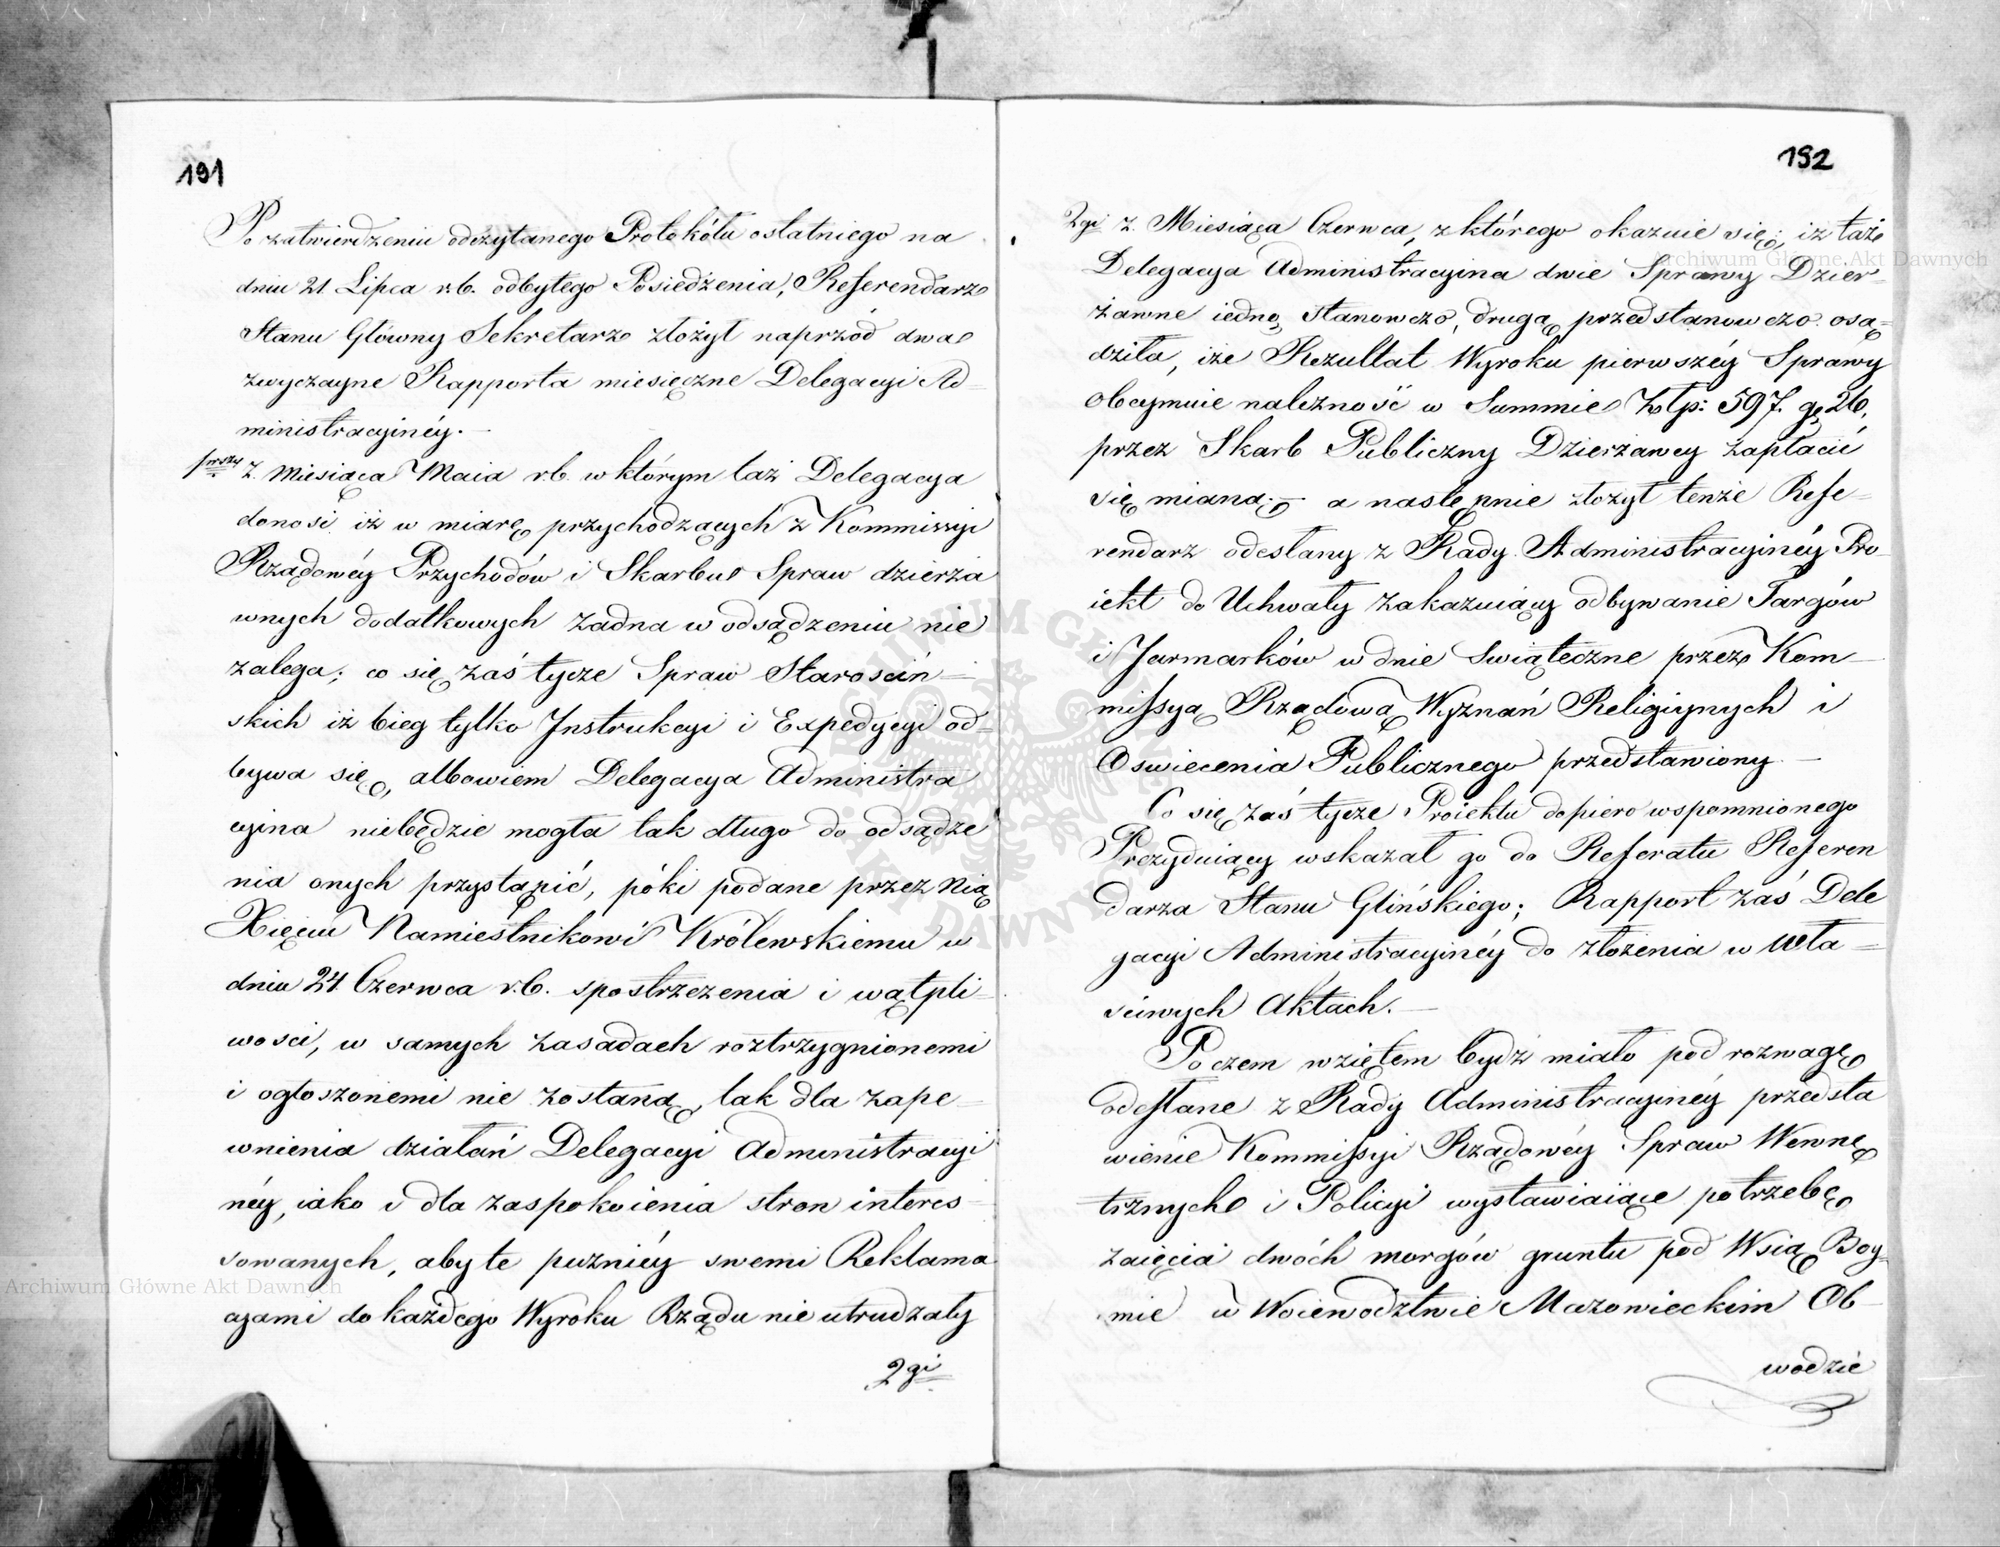 191
Po zatwierdzeniu odczytanego Protokółu ostatniego na
dniu 21 Lipca r.b. odbytego Posiedzenia, Referendarz
Stanu Główny Sekretarz złożył naprzód dwa
zwyczayne Rapporta miesięczne Delegacyi Ad-
ministracyinéy. —
pierwszy z Miesiąca Maia r.b. w którym taż Delegacya
donosi iż w miarę przychodzących z Kommissyi
Rządowéy Przychodów i Skarbu Spraw dzierża
wnych dodatkowych żadna w odsądzeniu nie
zalega; co się zaś tycze Spraw Starościń=
skich iż bieg tylko Instrukcyi i Expedycyi od=
bywa się, albowiem Delegacya Administra
cyina niebędzie mogła tak długo do odsądze
nia onych przystąpić, póki podane przez Nią
Xięciu Namiestnikowi Królewskiemu w
dniu 24 Czerwca r.b. spostrzeżenia i wątpli
wości, w samych zasadach roztrzygnionemi
i ogłoszonemi nie zostaną, tak dla zape-
wnienia działań Delegacyi Administracyi
néy, iako i dla zaspokoienia stron interes-
sowanych, aby te puźniéy swemi Reklama
cyami do każdego Wyroku Rządu nie utrudzały
2gi
192
2gi z Miesiąca Czerwca, z którego okazuie się, iż taż
Delegacya Administracyina dwie Sprawy Dzier-
żawne iedną stanowczo, drugą przedstanowczo osą=
dziła, iże Rezultat Wyroku pierwszéy Sprawy
obeymuie należność w Summie Złtp: 597. gr 26,
przez Skarb Publiczny Dzierżawcy zapłacić
się mianą; — a następnie złożył tenże Refe=
rendarz odesłany z Rady Administracyinéy Pro-
iekt do Uchwały zakazuiący odbywanie Targów
i Jarmarków w dnie Swiąteczne przez Kom-
missyą Rządową Wyznań Religiynych i
Oswiecenia Publicznego przedstawiony —
Co się zaś tycze Proiektu dopiero wspomnionego
Prezyduiący wskazał go do Referatu Referen
darza Stanu Glińskiego; Rapport zaś Dele
gacyi Administracyinéy do złożenia w wła=
ściwych Aktach. —
Poczem wziętem bydź miało pod rozwagę
odesłane z Rady Administracyinéy przedsta
wienie Kommissyi Rządowéy Spraw Wewnę
trznych i Policyi wystawiaiące potrzebę
zaięcia dwóch morgów gruntu pod Wsią Boy-
mie w Woiewództwie Mazowieckim Ob-
wodzie
Archiwum Główne Akt Dawnych
Archiwum Główne Akt Dawnych
ARCHIWUM GŁÓWNE AKT DAWNYCH